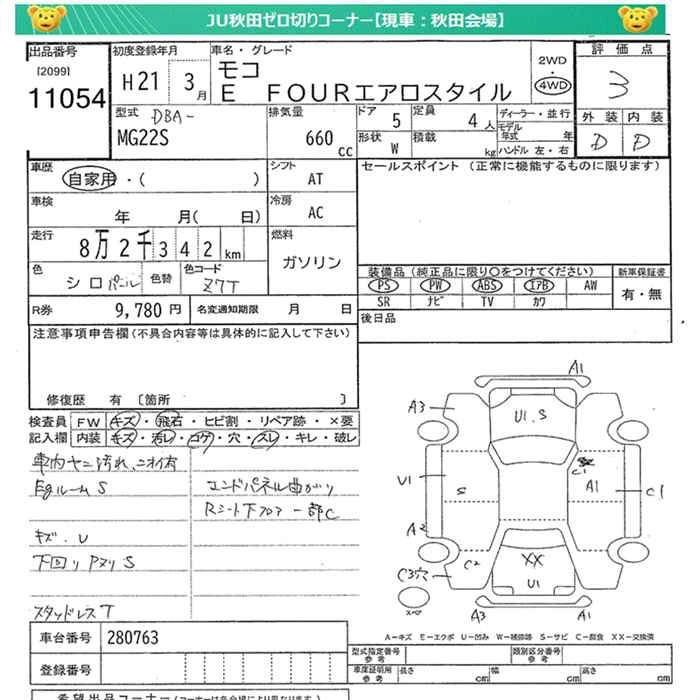 JU秋田ゼロ切りコーナー【現車：秋田会場】
出品番号 初度登録年月 車名・グレード 2WD・4WD 評価点
[2099]
11054
H21 3月
モコ
E FOURエアロスタイル
3
型式 DBA-
MG22S
排気量
660 cc
ドア 5
定員 4人
ディーラー・並行
モデル年式 年
ハンドル 左・右
形状 W
積載 kg
外装 内装
D D
車歴 自家用・( )
シフト AT
セールスポイント (正常に機能するものに限ります)
車検 年 月( 日)
冷房 AC
走行 8万2千342km
燃料 ガソリン
色 シロパール
色替
色コード Z7T
装備品(純正品に限り○をつけてください)
新車保証書
PS PW ABS エアB AW
SR ナビ TV カワ
有・無
R券 9,780円
名変通知期限 月 日
後日品
注意事項申告欄(不具合内容等は具体的に記入して下さい)
修復歴 有 〔箇所 〕
検査員記入欄
FW キズ・飛石・ヒビ割・リペア跡・×要
内装 キズ・汚レ・コゲ・穴・スレ・キレ・破レ
車内ヤニ汚れ、ニオイ有
EgルームS
キズ.U
下回りPヌリS
スタッドレスT
エンドパネル曲がり
Rシート下フロアー部C
A1
A3
U1.S
C1
U1
S
A1
C1
A2
C2
XX
C3穴
U1
スペ
A3
A1
A－キズ E－エクボ U－凹み W－補修跡 S－サビ C－腐食 XX－交換済
車台番号 280763
登録番号
型式指定番号 参考
類別区分番号 参考
車庫証明用 参考
長さ cm
幅 cm
高さ cm
希望出品コーナー(コーナーは各会場により異なります)